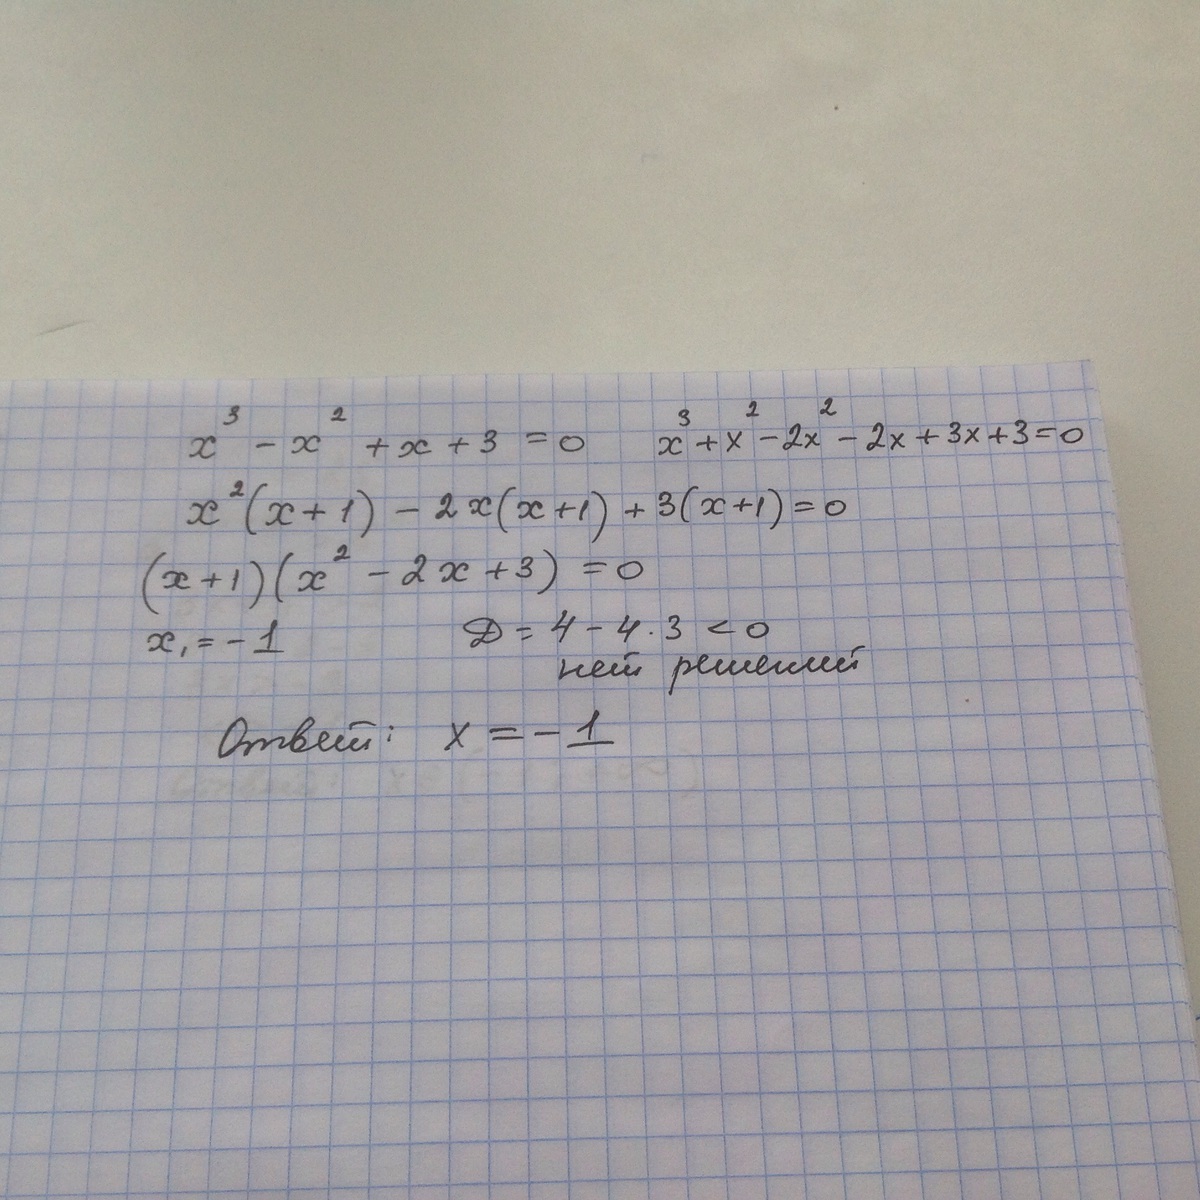 x³ - x² + x + 3 = 0 x³ + x² - 2x² - 2x + 3x + 3 = 0
x²(x + 1) - 2x(x + 1) + 3(x + 1) = 0
(x + 1)(x² - 2x + 3) = 0
x₁ = -1 D = 4 - 4 · 3 < 0
нет решений
Ответ: x = -1